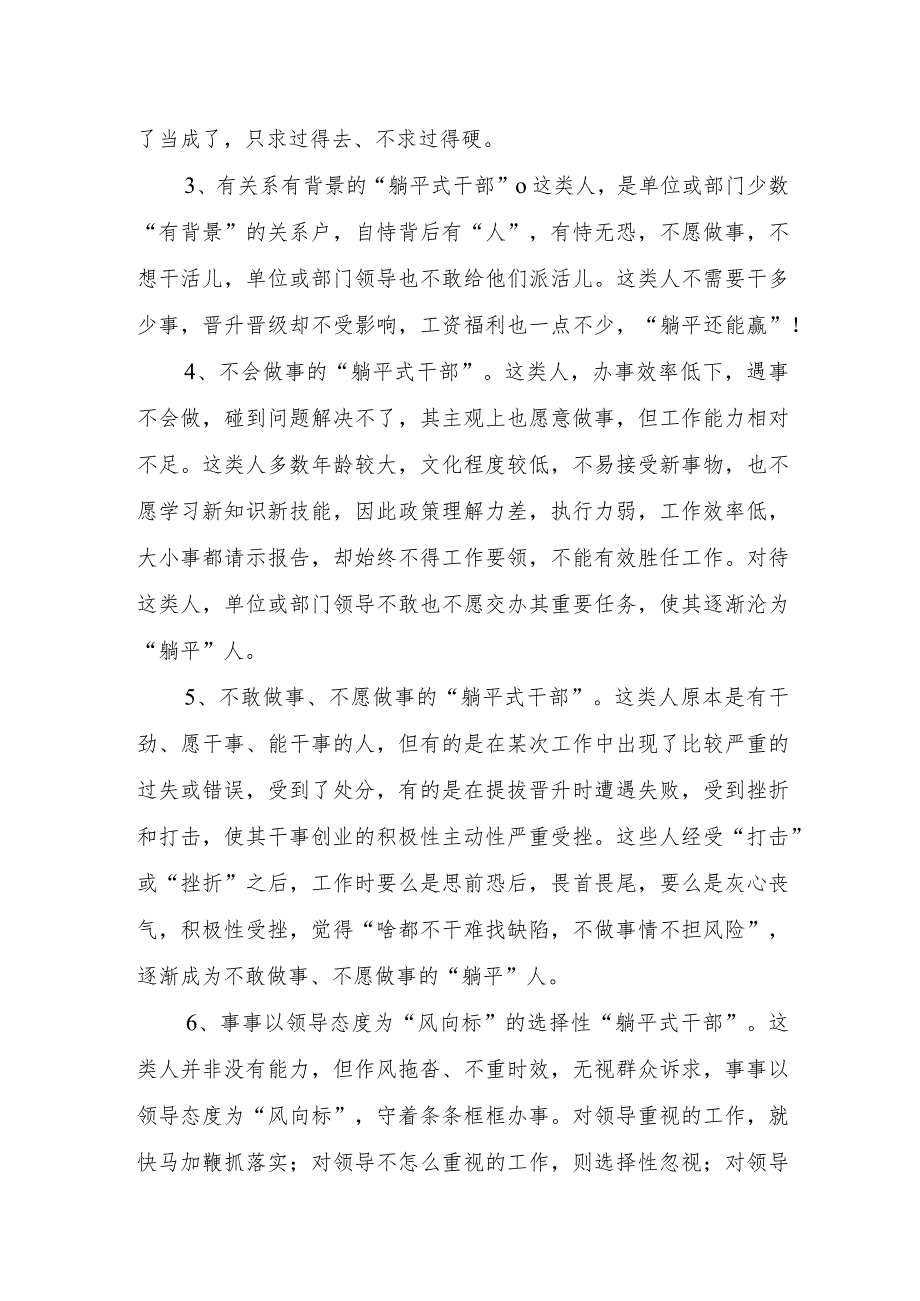 了当成了，只求过得去、不求过得硬。
3、有关系有背景的“躺平式干部”o这类人，是单位或部门少数
“有背景”的关系户，自恃背后有“人”，有恃无恐，不愿做事，不
想干活儿，单位或部门领导也不敢给他们派活儿。这类人不需要干多
少事，晋升晋级却不受影响，工资福利也一点不少，“躺平还能赢”！
4、不会做事的“躺平式干部”。这类人，办事效率低下，遇事
不会做，碰到问题解决不了，其主观上也愿意做事，但工作能力相对
不足。这类人多数年龄较大，文化程度较低，不易接受新事物，也不
愿学习新知识新技能，因此政策理解力差，执行力弱，工作效率低，
大小事都请示报告，却始终不得工作要领，不能有效胜任工作。对待
这类人，单位或部门领导不敢也不愿交办其重要任务，使其逐渐沦为
“躺平”人。
5、不敢做事、不愿做事的“躺平式干部”。这类人原本是有干
劲、愿干事、能干事的人，但有的是在某次工作中出现了比较严重的
过失或错误，受到了处分，有的是在提拔晋升时遭遇失败，受到挫折
和打击，使其干事创业的积极性主动性严重受挫。这些人经受“打击”
或“挫折”之后，工作时要么是思前恐后，畏首畏尾，要么是灰心丧
气，积极性受挫，觉得“啥都不干难找缺陷，不做事情不担风险”，
逐渐成为不敢做事、不愿做事的“躺平”人。
6、事事以领导态度为“风向标”的选择性“躺平式干部”。这
类人并非没有能力，但作风拖沓、不重时效，无视群众诉求，事事以
领导态度为“风向标”，守着条条框框办事。对领导重视的工作，就
快马加鞭抓落实；对领导不怎么重视的工作，则选择性忽视；对领导